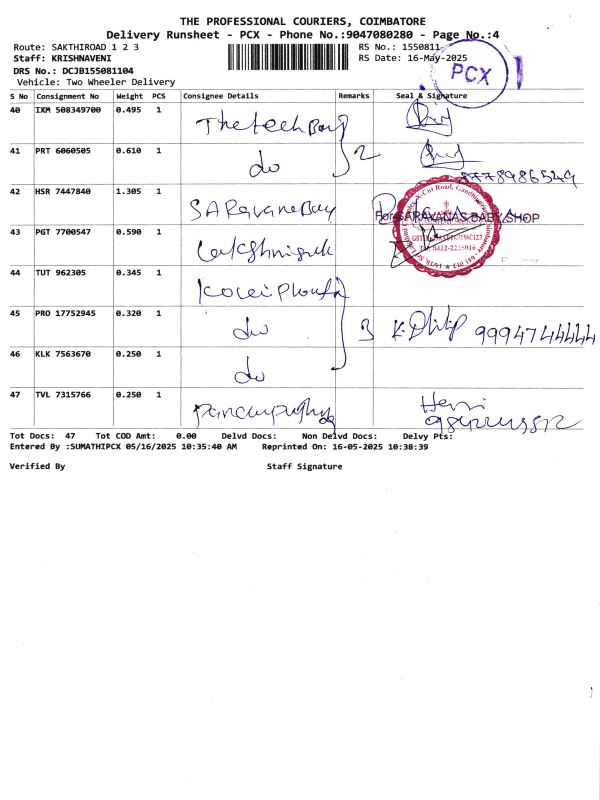 THE PROFESSIONAL COURIERS, COIMBATORE
Delivery Runsheet - PCX - Phone No.:9047080280 - Page No.:4
Route: SAKTHIROAD 1 2 3
RS No.: 1550811
Staff: KRISHNAVENI
RS Date: 16-May-2025
PCX
DRS No.: DCJB155081104
Vehicle: Two Wheeler Delivery
S No Consignment No Weight PCS Consignee Details Remarks Seal & Signature
40 IXM 508349700 0.495 1 Thetech Bay
41 PRT 6060505 0.610 1 do 2
8778986549
42 HSR 7447840 1.305 1 SARavana Bay
For SARAVANAS BABY SHOP
43 PGT 7700547 0.590 1
44 TUT 962305 0.345 1
45 PRO 17752945 0.320 1 do 3 K. Dhilip 9994744444
46 KLK 7563670 0.250 1 do
47 TVL 7315766 0.250 1
Tot Docs: 47 Tot COD Amt: 0.00 Delvd Docs: Non Delvd Docs: Delvy Pts:
Entered By :SUMATHIPCX 05/16/2025 10:35:40 AM Reprinted On: 16-05-2025 10:38:39
Verified By Staff Signature